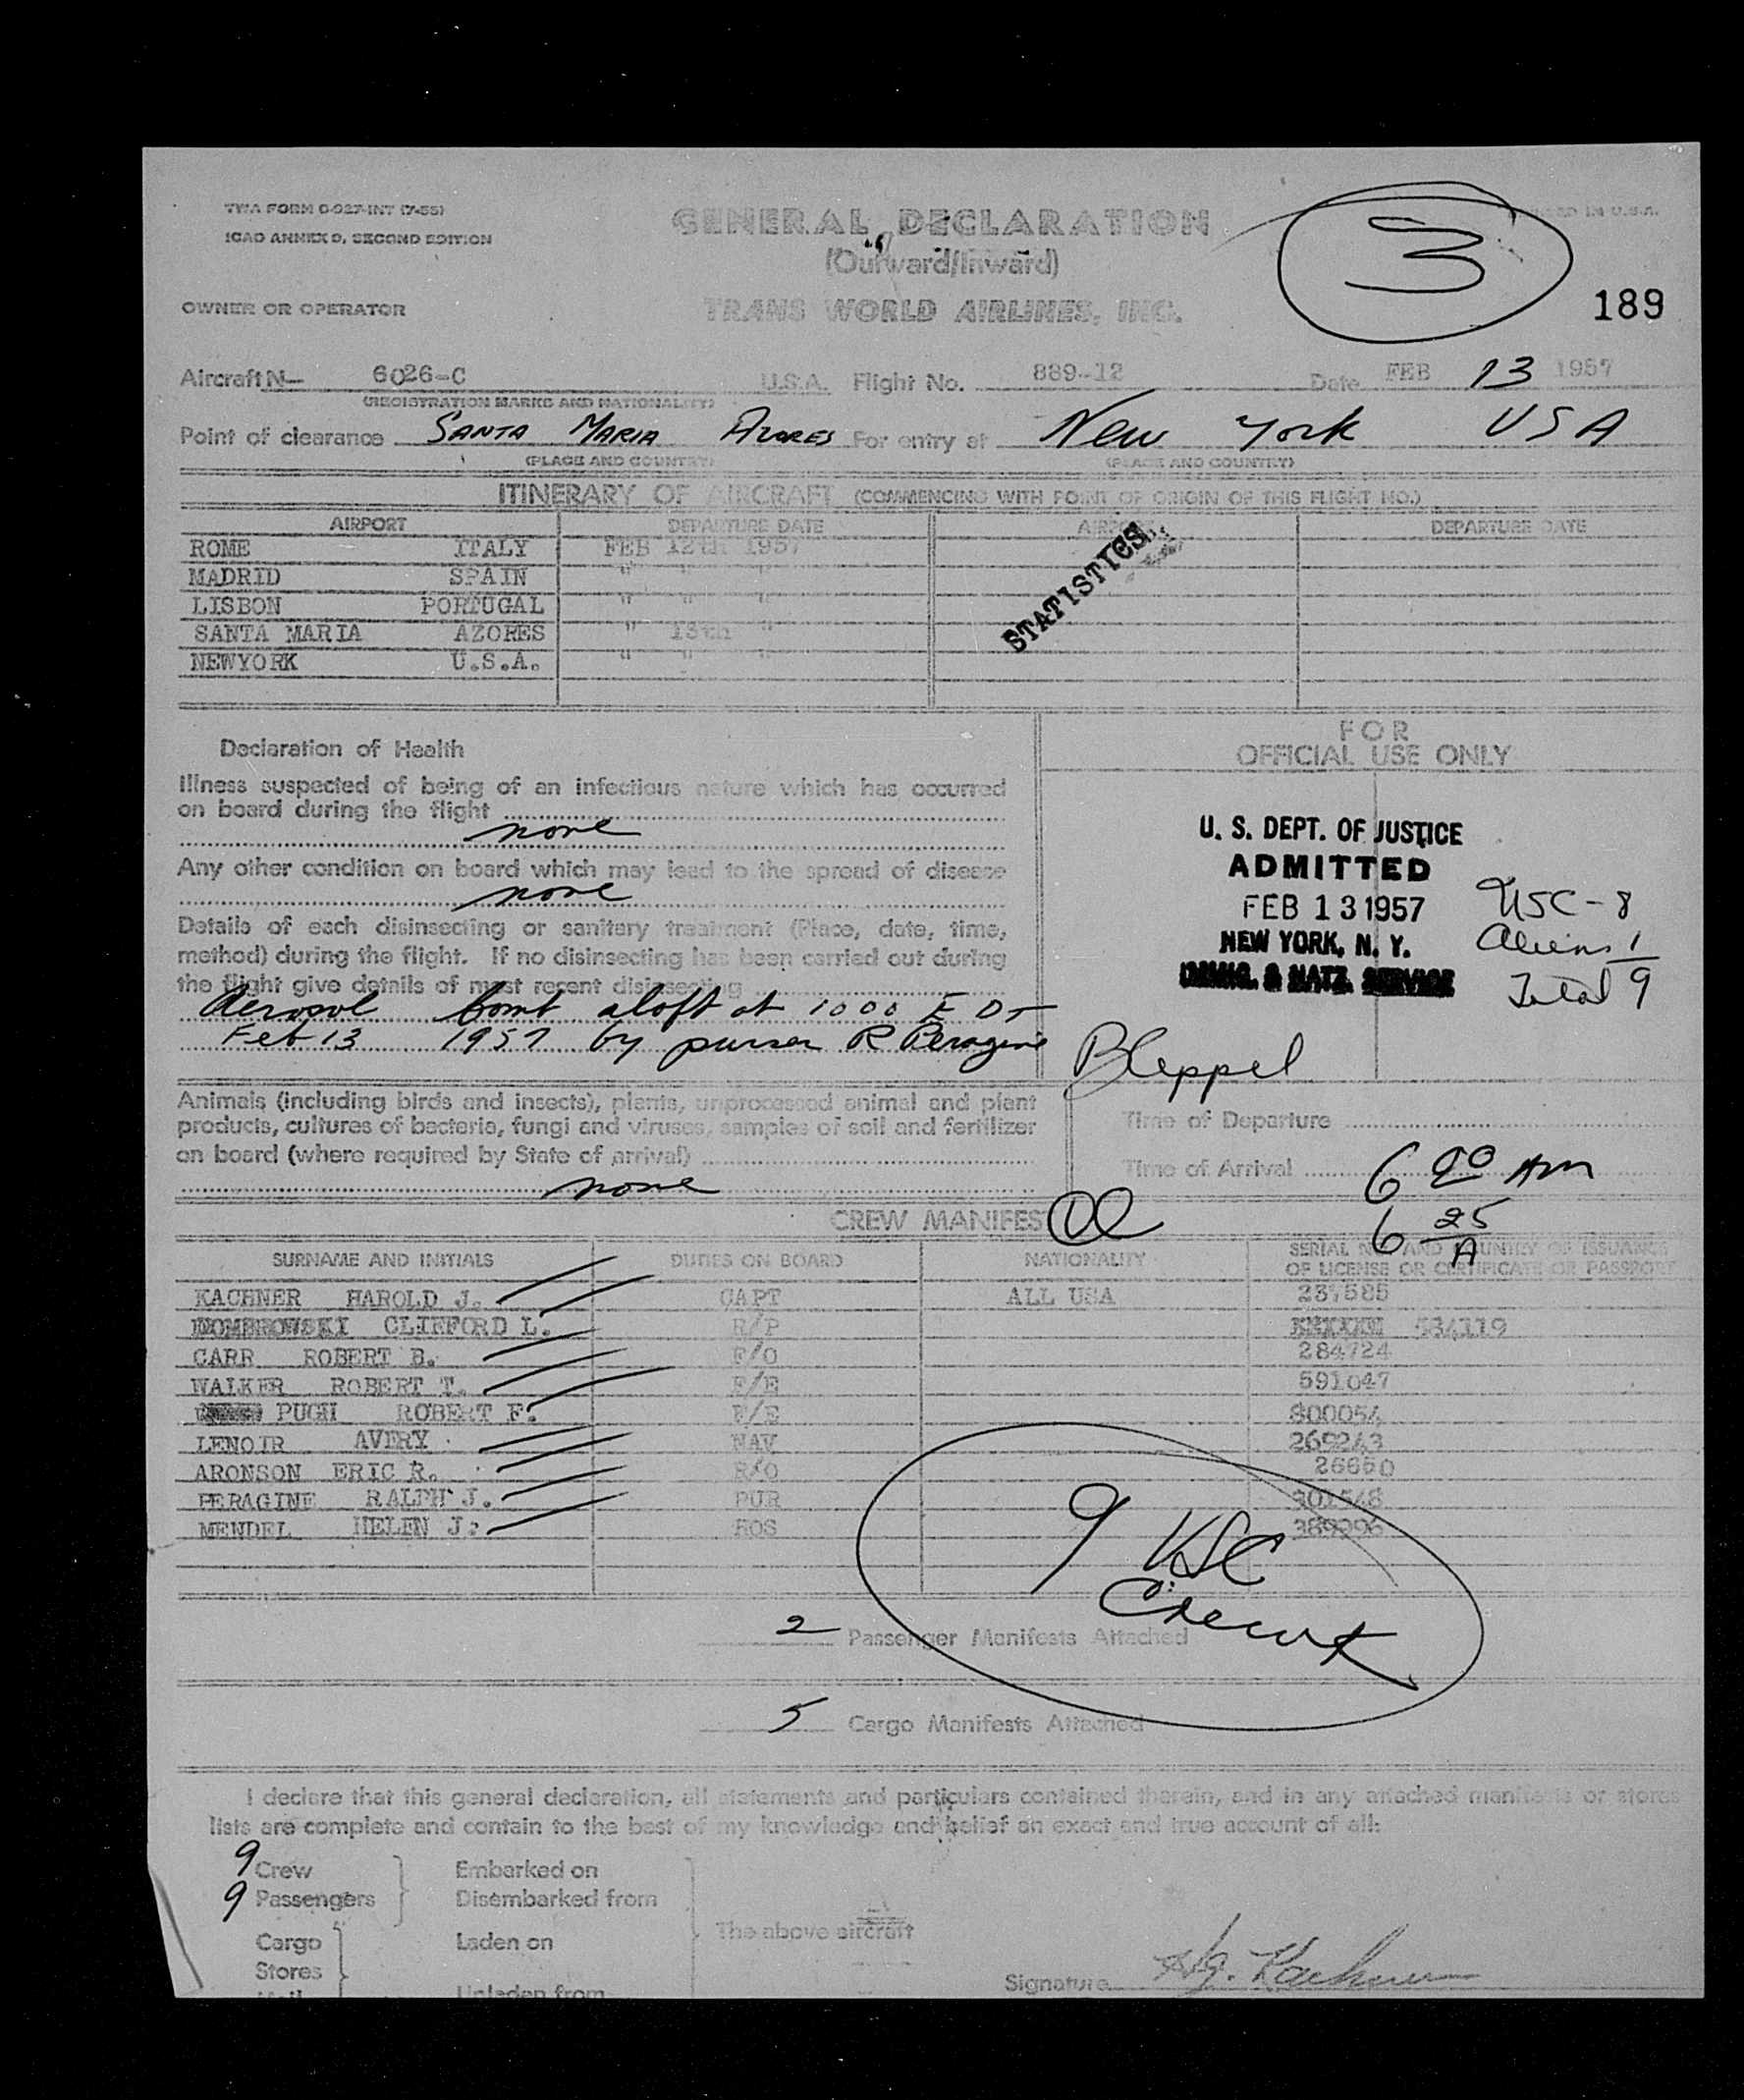 TWA FORM 0-927-INT (7-55)
ICAO ANNEX 9, SECOND EDITION
GENERAL DECLARATION
(Outward/Inward)
IN U.S.A.
3
OWNER OR OPERATOR
TRANS WORLD AIRLINES, INC.
189
Aircraft N- 6026-C U.S.A. Flight No. 889-12 Date FEB 13 1957
(REGISTRATION MARKS AND NATIONALITY)
Point of clearance SANTA MARIA AZORES For entry at New York USA
(PLACE AND COUNTRY) (PLACE AND COUNTRY)
ITINERARY OF AIRCRAFT (COMMENCING WITH POINT OF ORIGIN OF THIS FLIGHT NO.)
AIRPORT DEPARTURE DATE AIRPORT DEPARTURE DATE
ROME ITALY FEB 12th 1957
MADRID SPAIN " " "
LISBON PORTUGAL " " "
SANTA MARIA AZORES " 13th "
NEWYORK U.S.A. " " "
STATISTICS
Declaration of Health
Illness suspected of being of an infectious nature which has occurred
on board during the flight
none
Any other condition on board which may lead to the spread of disease
none
Details of each disinsecting or sanitary treatment (Place, date, time,
method) during the flight. If no disinsecting has been carried out during
the flight give details of most recent disinsecting
Aerosol bomb aloft at 1000 E DT
Feb 13 1957 by purser R Peragine
FOR
OFFICIAL USE ONLY
U. S. DEPT. OF JUSTICE
ADMITTED
FEB 13 1957
NEW YORK, N. Y.
IMMIG. & NATZ. SERVICE
USC - 8
Aliens 1
Total 9
Bleppel
Animals (including birds and insects), plants, unprocessed animal and plant
products, cultures of bacteria, fungi and viruses, samples of soil and fertilizer
on board (where required by State of arrival)
none
Time of Departure
Time of Arrival 6 20 AM
6 25 A
CREW MANIFEST
SURNAME AND INITIALS DUTIES ON BOARD NATIONALITY SERIAL NO. AND COUNTRY OF ISSUANCE
OF LICENSE OR CERTIFICATE OR PASSPORT
KACHNER HAROLD J. CAPT ALL USA 237585
DOMBROWSKI CLIFFORD L. R/P 534119
CARR ROBERT B. F/O 284724
WALKER ROBERT T. F/E 591047
PUGH ROBERT F. F/E 800054
LENOIR AVERY NAV 269243
ARONSON ERIC R. R/O 26660
PERAGINE RALPH J. PUR 301548
MENDEL HELEN J. HOS 389296
9 USC
Crew
2 Passenger Manifests Attached
5 Cargo Manifests Attached
I declare that this general declaration, all statements and particulars contained therein, and in any attached manifests or stores
lists are complete and contain to the best of my knowledge and belief an exact and true account of all:
9 Crew Embarked on
9 Passengers Disembarked from
The above aircraft
Cargo Laden on
Stores
Signature H.J. Kachner
Mail Unladen from